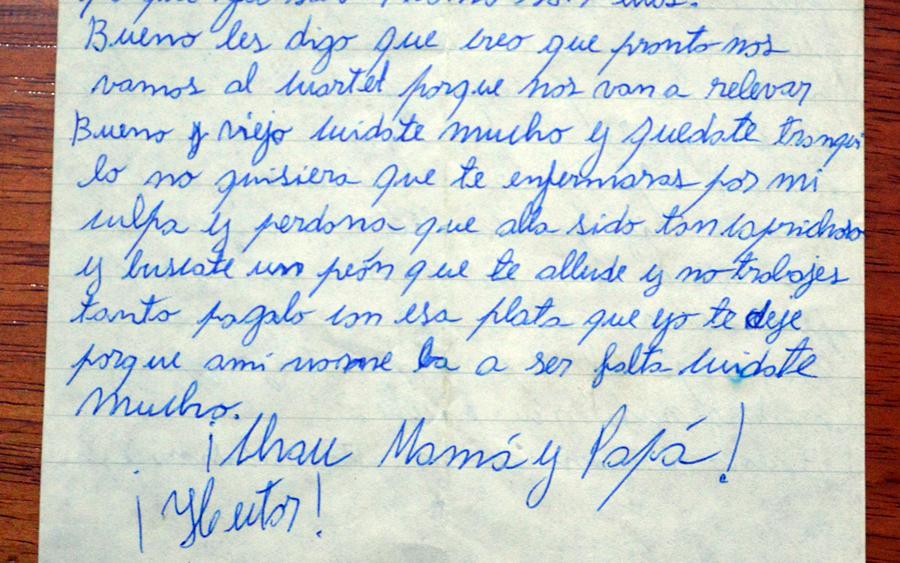 Bueno les digo que creo que pronto nos
vamos al cuartel porque nos van a relevar
Bueno y viejo cuidate mucho y quedate tranqui
lo no quisiera que te enfermaras por mi
culpa y perdona que alla sido tan caprichoso
y buscate un peón que te allude y no trabajes
tanto pagalo con esa plata que yo te deje
porque ami nome ba a ser falta cuidate
mucho.
¡Chau Mamá y Papá!
¡Hector!